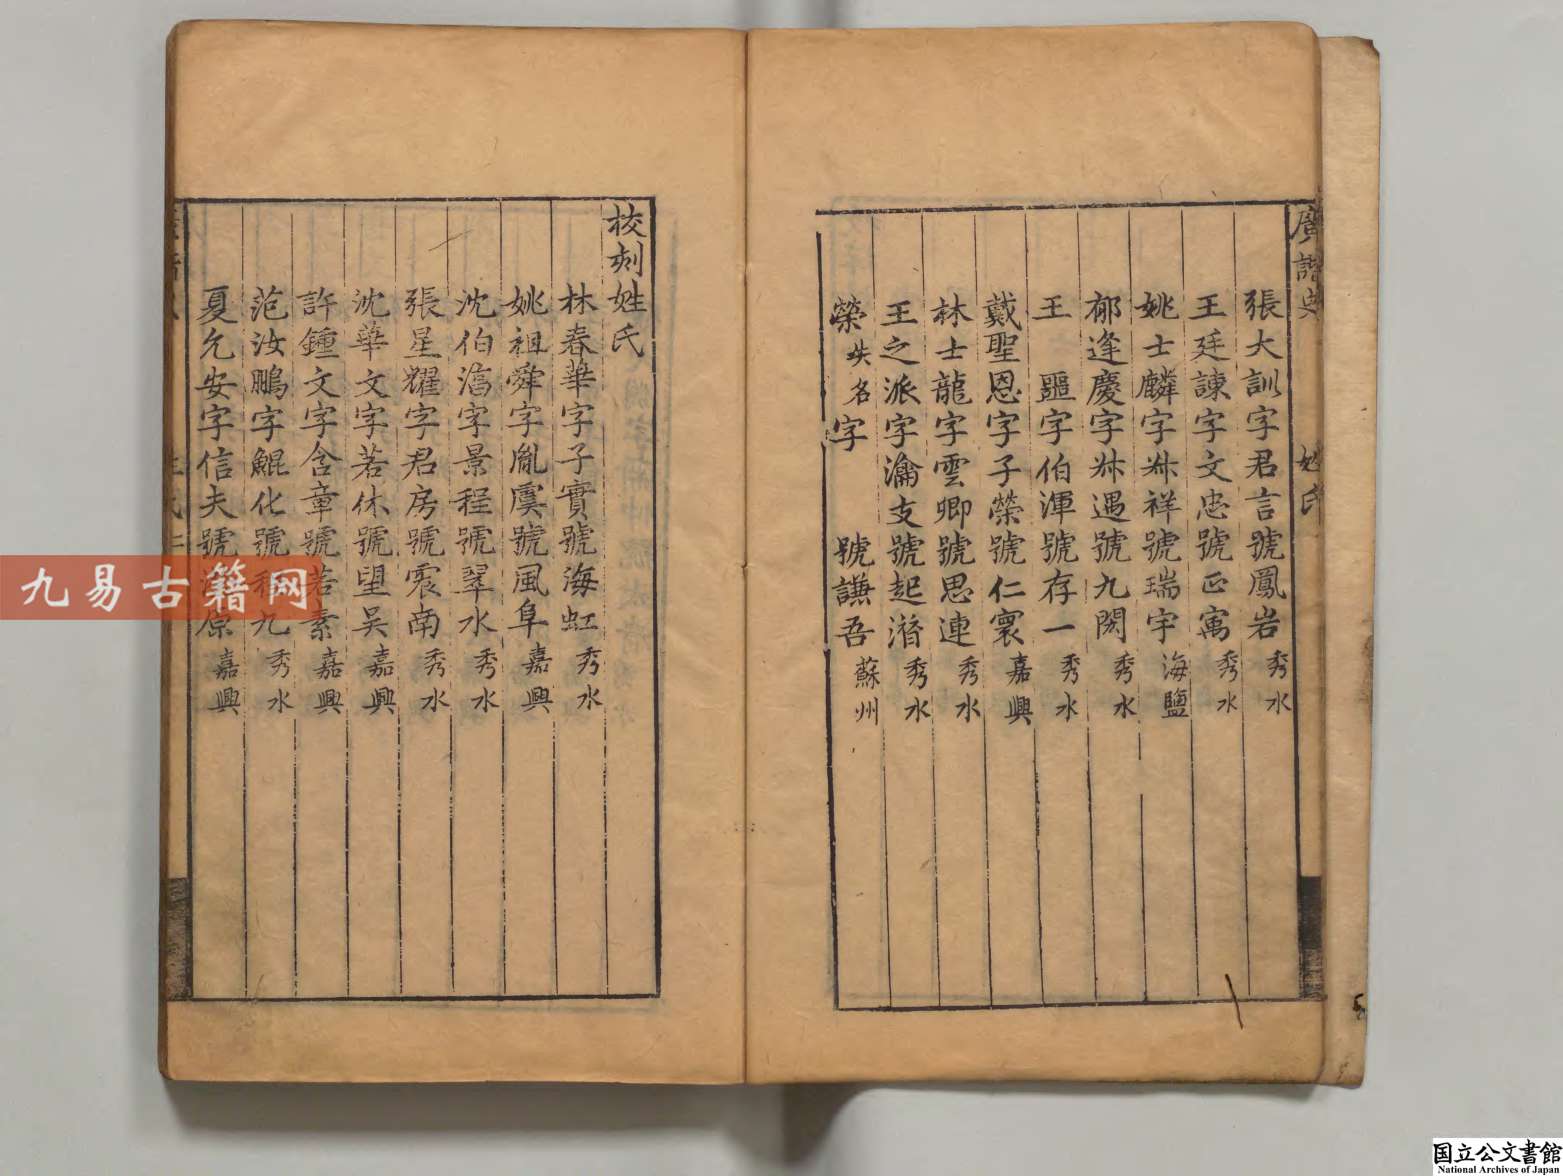 廣諧史
姓氏
張大訓字君言號鳳岩秀水
王廷諫字文忠號正寓秀水
姚士麟字叔祥號瑞宇海鹽
郁逢慶字叔遇號九閼秀水
王嚚字伯渾號存一秀水
戴聖恩字子榮號仁寰嘉興
林士龍字雲卿號思連秀水
王之派字瀹支號起潛秀水
榮失名字 號謙吾蘇州
校刻姓氏
林春華字子實號海虹秀水
姚祖舜字胤虞號風阜嘉興
沈伯字景程號翠水秀水
張星耀字君房號寰南秀水
沈華文字若休號望吳嘉興
許鍾文字含章號若素嘉興
范汝鵬字鯤化號九秀水
夏允安字信夫號原嘉興
九易古籍网
国立公文書館
National Archives of Japan